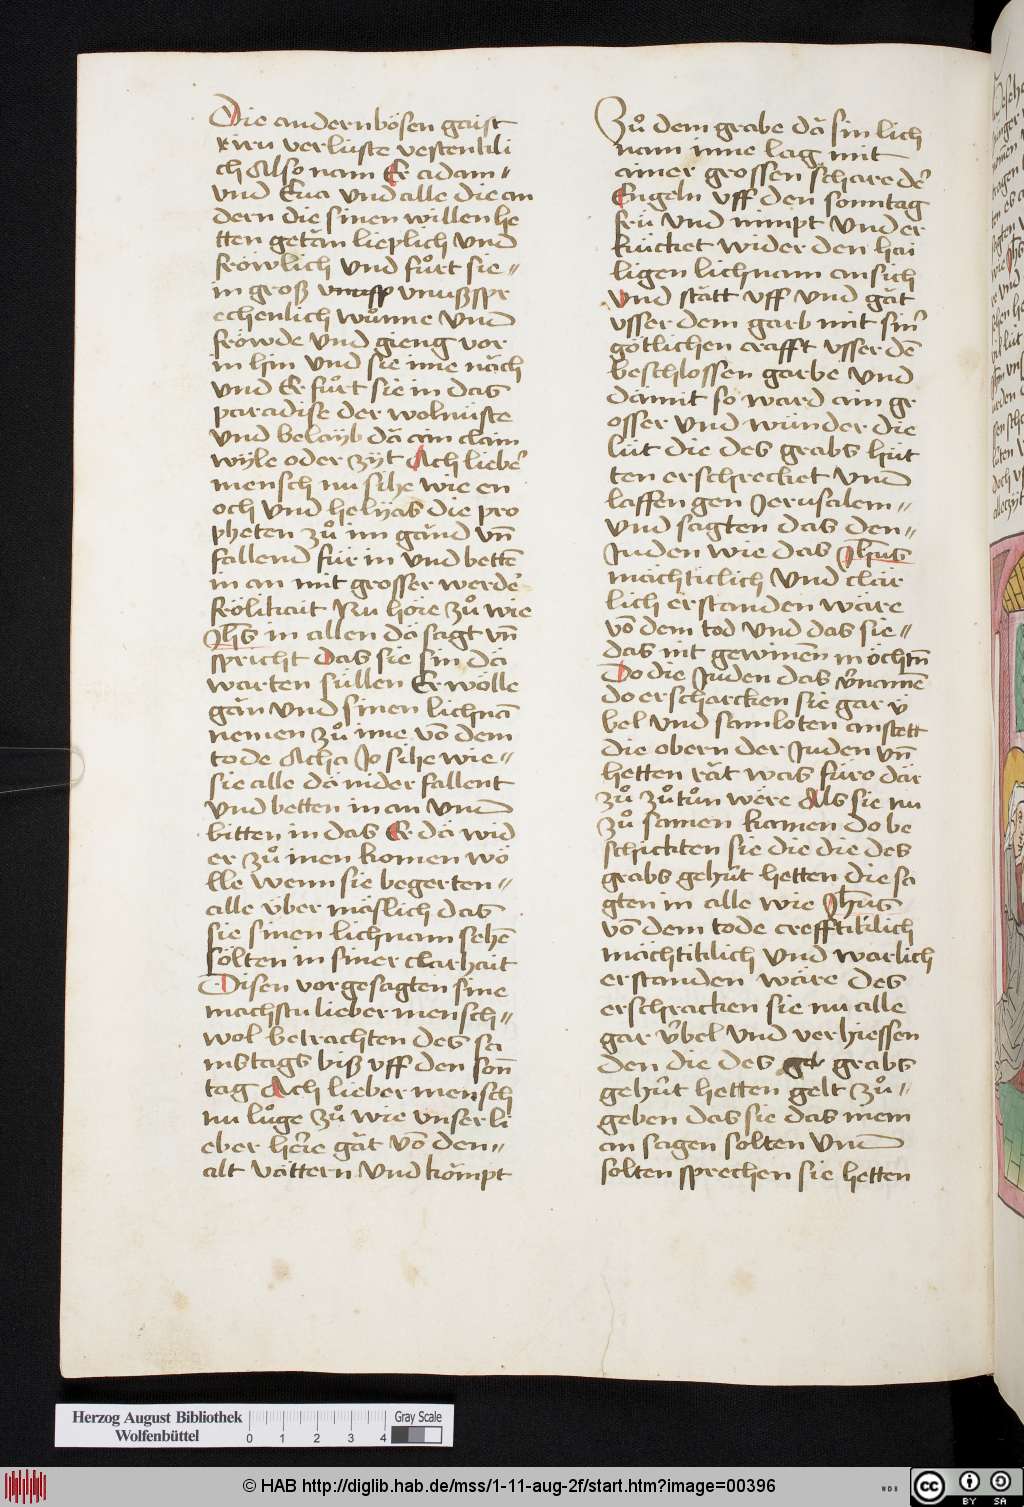 Die andern bösen gaist
ch Also nam Er adam
und Eua vnd alle die an
dern die sinen willen he
tten getän lieplich vnd
fröwlich vnd fůrt sie
in groß vnussp vnußspr
echenlich wůnne vnd
fröwde vnd gieng vor
in hin vnd sie ime näch
vnd Er fůrt sie in das
paradise der wolnüste
vnd belayb dä ain clain
wyle oder zyt Ach lieber
mensch nu sihe wie en
och vnd helyas die pro
pheten zů im gänd vn̄
fallend für in vnd bettē
in an mit grosser werder
frölikait Nu höre zů wie
Jhs in allen dä sagt vn̄
spricht Das sie sin dä
warten süllen Er wölle
gän vnd sinen lichnā
nemen zů ime vō dem
tode Acha Jo sihe wie
sie alle dä nider fallent
vnd betten in an vnd
bitten in das Er dä wid
er zů inen komen wö
lle wenn sie begerten
alle über mäslich das
sie sinen lichnam sehē
sölten in siner clarhait
Disen vorgesagten sine
machstu lieber mensch
wol betrachten des sa
mstags biß vff den son̄
tag Ach lieber mensch
nu lůge zů wie vnser li
eber here gät vō den
alt vättern vnd kömpt
Zů dem grabe dä sin lich
nam inne lag mit
ainer grossen schare der
Engeln vff den sonntag
frü vnd nimpt vnd er
kücket wider den hai
ligen lichnam an sich
vnd stätt vff vnd gät
vsser dem garb mit siner
götlichen crafft vsser dē
beschlossen garbe vnd
dämit so ward ain gr
osser vnd wünder die
lüt die des grabs hüt
ten erschrecket vnd
laffen gen Jerusalem
vnd sagten das den
Juden wie das Jhūs
mächticlich vnd clär
lich erstanden wäre
vō dem tod vnd das sie
das nit gewinen möchtn̄
Do die Juden das vernamē
do erscharcken sie gar ü
bel vnd samloten an stett
die obern der Juden vn̄
hetten rät was füro där
zů zů tůn were Als sie nu
zů samen kamen do be
schickten sie die die des
grabs gehüt hetten die sa
gten in alle wie Jhūs
vō dem tode crefftiklich
mächtiklich vnd warlich
erstanden wäre des
erschracken sie nu alle
gar übel vnd verhiessen
den die des gab grabs
gehüt hetten gelt zů
geben das sie das niem
an sagen solten vnd
solten sprechen sie hetten
Herzog August Bibliothek
Wolfenbüttel
0 1 2 3 4
Gray Scale
© HAB http://diglib.hab.de/mss/1-11-aug-2f/start.htm?image=00396
WDB
cc BY SA